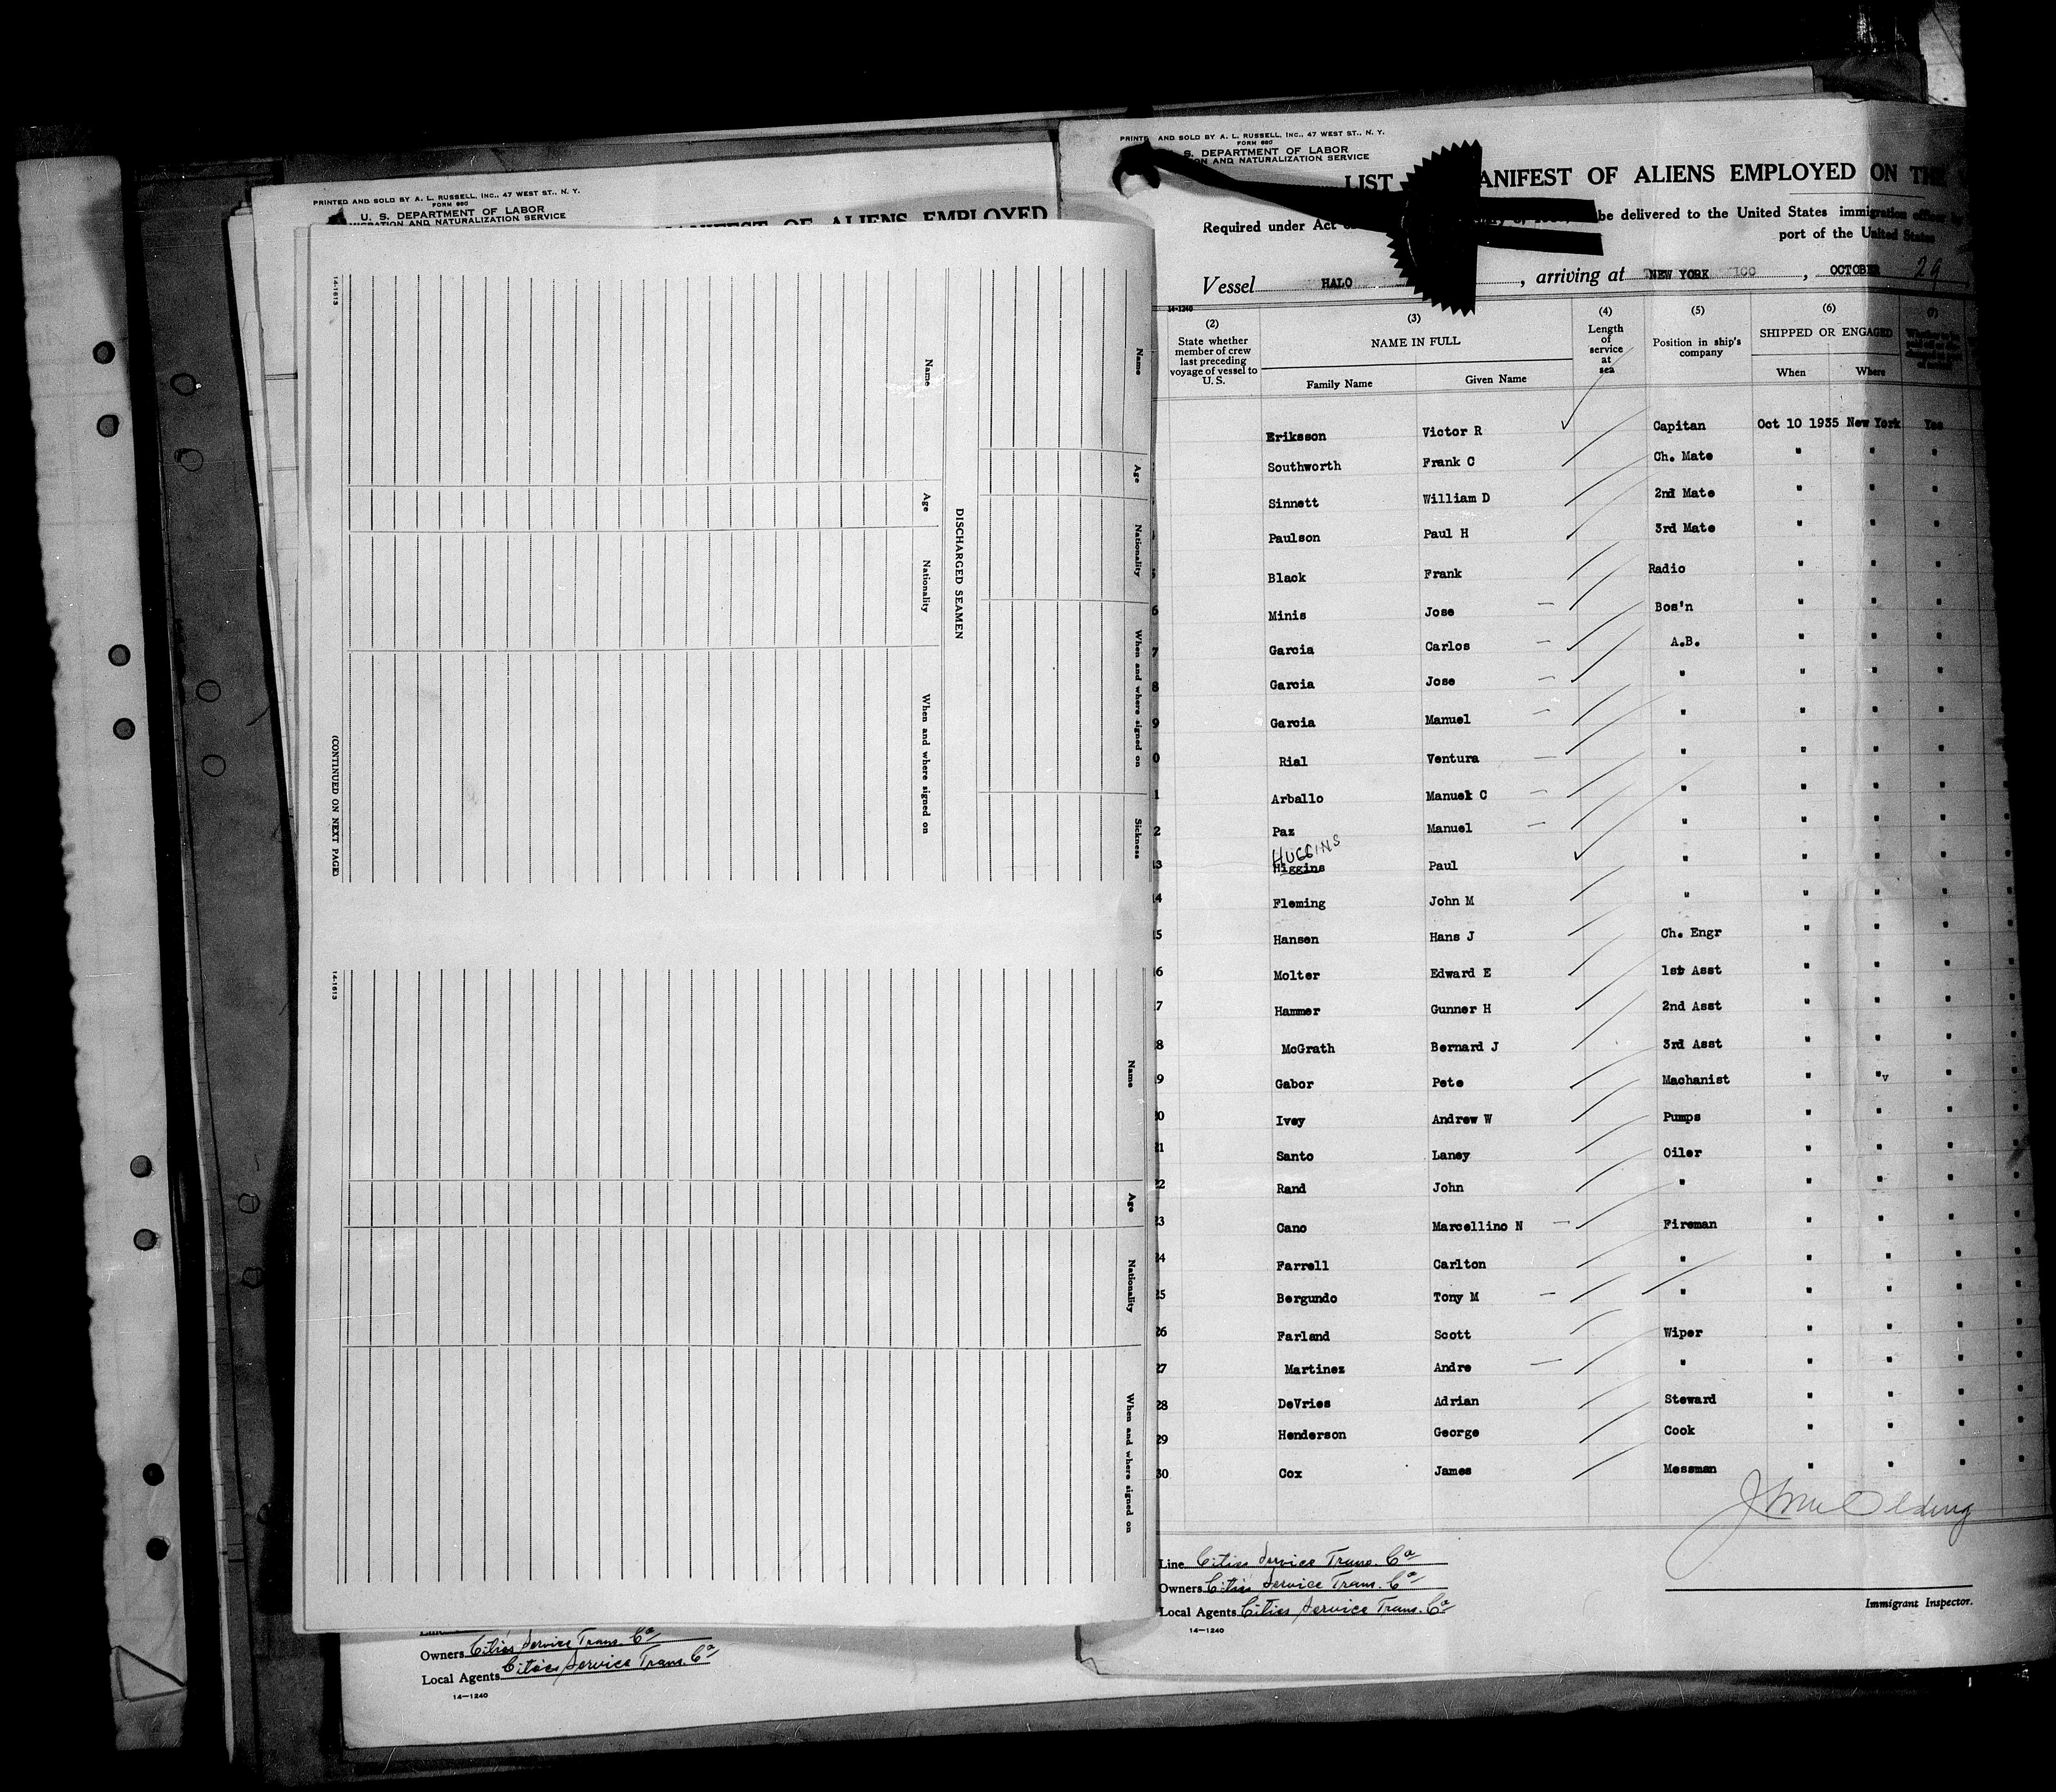 PRINTED AND SOLD BY A. L. RUSSELL, INC., 47 WEST ST., N. Y.
FORM 680
U. S. DEPARTMENT OF LABOR
MIGRATION AND NATURALIZATION SERVICE
MANIFEST OF ALIENS EMPLOYED
14-1613
Name
Age
Nationality
When and where signed on
Sickness
DISCHARGED SEAMEN
Name
Age
Nationality
When and where signed on
(CONTINUED ON NEXT PAGE)
14-1613
Name
Age
Nationality
When and where signed on
Owners Cities Service Trans. Co
Local Agents Cities Service Trans. Co
14-1240
PRINTE AND SOLD BY A. L. RUSSELL, INC., 47 WEST ST., N. Y.
FORM 680
S. DEPARTMENT OF LABOR
ON AND NATURALIZATION SERVICE
LIST ANIFEST OF ALIENS EMPLOYED ON THE
Required under Act be delivered to the United States immigration officer
port of the United States
Vessel HALO , arriving at NEW YORK , OCTOBER 29
14-1240
(2) (3) (4) (5) (6)
State whether member of crew last preceding voyage of vessel to U. S. NAME IN FULL Length of service at sea Position in ship's company SHIPPED OR ENGAGED
Family Name Given Name When Where
Eriksson Victor R Capitan Oct 10 1935 New York Yes
Southworth Frank C Ch. Mate " " "
Sinnett William D 2nd Mate " " "
Paulson Paul H 3rd Mate " " "
Black Frank Radio " " "
6 Minis Jose Bos'n " " "
7 Garcia Carlos A.B. " " "
8 Garcia Jose " " " "
9 Garcia Manuel " " " "
0 Rial Ventura " " " "
1 Arballo Manuel C " " " "
2 Paz Manuel " " " "
HUGGINS
3 Higgins Paul " " " "
4 Fleming John M " " " "
5 Hansen Hans J Ch. Engr " " "
6 Molter Edward E 1st Asst " " "
7 Hammer Gunner H 2nd Asst " " "
8 McGrath Bernard J 3rd Asst " " "
9 Gabor Pete Machanist " "v "
0 Ivey Andrew W Pumps " " "
21 Santo Laney Oiler " " "
22 Rand John " " " "
23 Cano Marcellino N Fireman " " "
24 Farrell Carlton " " " "
25 Bergundo Tony M " " " "
26 Farland Scott Wiper " " "
27 Martinez Andre " " " "
28 DeVries Adrian Steward " " "
29 Henderson George Cook " " "
30 Cox James Messman " " "
Line Cities Service Trans. Co
Owners Cities Service Trans. Co
Local Agents Cities Service Trans. Co
14-1240
Immigrant Inspector.